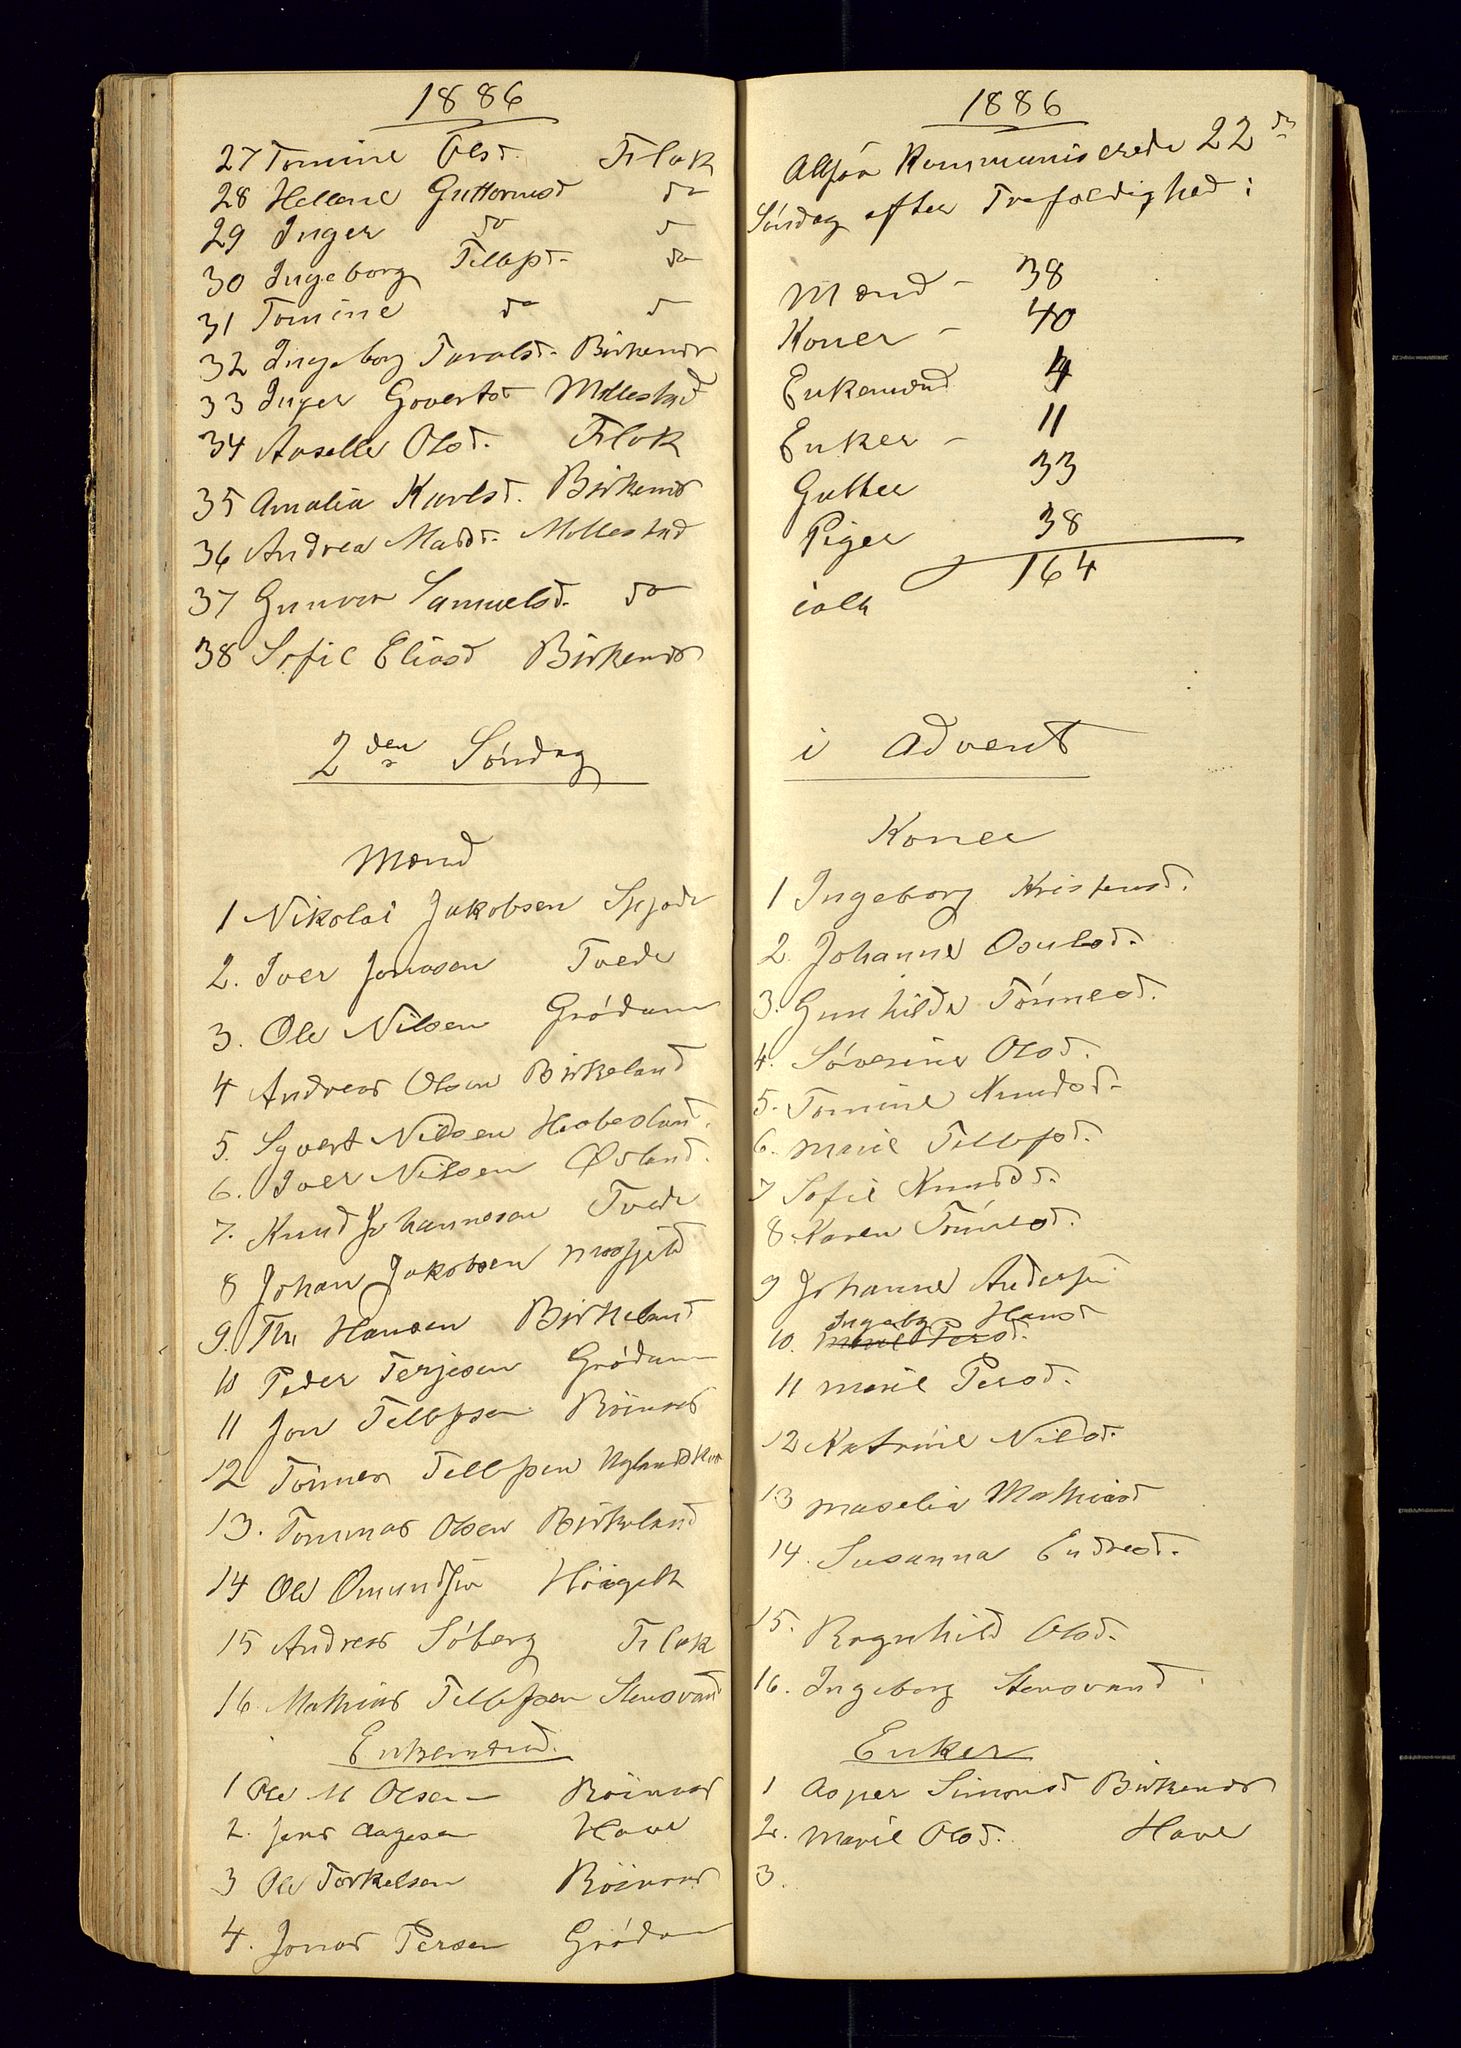 1886
27 Tomine Olsd. Flak
28 Hellene Guttormsd do
29 Inger do do
30 Ingeborg Tellefsd. do
31 Tomine do do
32 Ingeborg Taralsd. Birkenes
33 Inger Govertsd Mollestad
34 Aaselle Olsd. Flak
35 Amalia Karlsd. Birkenes
36 Andrea Madsd. Mollestad
37 Gunvor Samuelsd. do
38 Sofie Eliasd Birkenes
2den Søndag
Mænd
1 Nikolai Jakobsen
2. Iver Jonassen Tvede
3. Ole Nilsen Grødum
4 Andreas Olsen Birkeland
5. Syvert Nilsen Hæbesland.
6. Iver Nilsen Øvland.
7. Knud Johannesen Tvede
8 Johan Jakobsen Mosfjeld
9. Ths Hansen Birkeland
10 Peder Terjesen Grødum
11 Jon Tellefsen Röinaas
12 Tønnes Tellefsen
13. Tommas Olsen Birkeland
14 Ole Omundsen
15 Andreas Søberg Flak
16. Mathias Tellefsen Stensvand
Enkemænd.
1 Ole M Olsen Röinaas
2. Jens Aagesen Have
3 Ole Torkelsen Röinaas
4. Jonas Persen Grødum
1886
Altsaa Kommunicerede 22de
Søndag efter Trefoldighed:
Mænd - 38
Koner - 40
Enkemænd 4
Enker - 11
Gutter 33
Piger 38
ialt 164
i Advent
Koner
1 Ingeborg Kristensd.
2. Johanne Osulsd.
3. Gunhilde Tønnesd.
4. Søverine Olsd.
5. Tomine Knudsd.
6. Marie Tellefsd.
7 Sofie Knudsd.
8. Karen Tønnesd.
9 Johanne Andersen
10. Ingebg Hansd
11 Marie Persd.
12 Katrine Nilsd.
13 Maselia Mathiasd
14. Susanna Endresd.
15. Ragnhild Olsd.
16. Ingeborg Stensvand
Enker
1 Asper Simonsd Birkenes
2. Marie Olsd. Have
3.